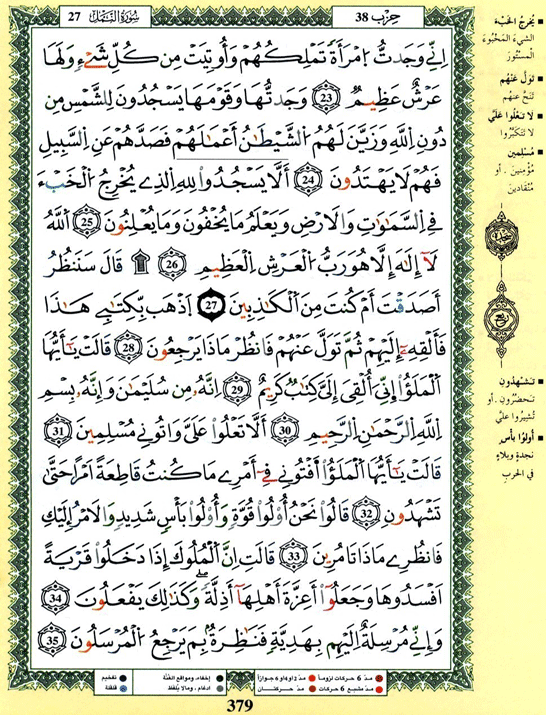 حِزْب 38
سُورَةُ النَّمْل 27
اِنِّے وَجَدتُّ اُ۪مْرَأَةٗ تَمْلِكُهُمْ وَأُوتِيَتْ مِن كُلِّ شَےْءٖ وَلَهَا
عَرْشٌ عَظِيمٌ 23 وَجَدتُّهَا وَقَوْمَهَا يَسْجُدُونَ لِلشَّمْسِ مِن
دُونِ اِللَّهِ وَزَيَّنَ لَهُمُ اُ۬لشَّيْطَٰنُ أَعْمَٰلَهُمْ فَصَدَّهُمْ عَنِ اِ۬لسَّبِيلِ
فَهُمْ لَا يَهْتَدُونَ 24 أَلَّا يَسْجُدُواْ لِلهِ اِ۬لذِے يُخْرِجُ اُ۬لْخَبْءَ
فِے اِ۬لسَّمَٰوَٰتِ وَالَارْضِ وَيَعْلَمُ مَا يُخْفُونَ وَمَا يُعْلِنُونَ 25 اَ۬للَّهُ
لَآ إِلَٰهَ إِلَّا هُوَ رَبُّ اُ۬لْعَرْشِ اِ۬لْعَظِيمِ ۩ 26 ۞ قَالَ سَنَنظُرُ
أَصَدَقْتَ أَمْ كُنتَ مِنَ اَ۬لْكَٰذِبِينَ 27 اَ۪ذْهَب بِّكِتَٰبِے هَٰذَا
فَأَلْقِهِۦٓ إِلَيْهِمْ ثُمَّ تَوَلَّ عَنْهُمْ فَانظُرْ مَاذَا يَرْجِعُونَ 28 قَالَتْ يَٰٓأَيُّهَا
اَ۬لْمَلَؤُاْ اِنِّيَ أُلْقِيَ إِلَيَّ كِتَٰبٞ كَرِيمٌ 29 اِنَّهُۥ مِن سُلَيْمَٰنَ وَإِنَّهُۥ بِسْمِ
اِ۬للَّهِ اِ۬لرَّحْمَٰنِ اِ۬لرَّحِيمِ 30 أَلَّا تَعْلُواْ عَلَيَّ وَاتُونِے مُسْلِمِينَ 31
قَالَتْ يَٰٓأَيُّهَا اَ۬لْمَلَؤُاْ اَفْتُونِے فِےٓ أَمْرِے مَا كُنتُ قَاطِعَةً اَمْراً حَتَّىٰ
تَشْهَدُونِ 32 قَالُواْ نَحْنُ أُوْلُواْ قُوَّةٖ وَأُوْلُواْ بَأْسٖ شَدِيدٖ وَالَامْرُ إِلَيْكِ
فَانظُرِے مَاذَا تَامُرِينَ 33 قَالَتِ اِنَّ اَ۬لْمُلُوكَ إِذَا دَخَلُواْ قَرْيَةً
اَفْسَدُوهَا وَجَعَلُوٓاْ أَعِزَّةَ أَهْلِهَآ أَذِلَّةٗ وَكَذَٰلِكَ يَفْعَلُونَ 34
وَإِنِّے مُرْسِلَةٌ اِلَيْهِم بِهَدِيَّةٖ فَنَاظِرَةُۢ بِمَ يَرْجِعُ اُ۬لْمُرْسَلُونَ 35
يُخْرِجُ الْخَبْءَ
الشيءَ المَخْبُوءَ
المَسْتُورَ
تَوَلَّ عَنْهُمْ
تَنَحَّ عنهم
لَا تَعْلُوا عَلَيَّ
لَا تتكبَّروا
مُسْلِمِين
مُؤْمِنِين . أو
مُنْقادين
سجدة
ربع
تَشْهَدُونِ
تحضُرُونِ . أو
تُشِيرُوا عليّ
أُولُوا بأس
نجدةٍ وبلاءٍ
في الحرب
مدّ 6 حركات لزوماً
مدّ 2 أو 4 أو 6 جوازاً
إخفاء، ومواقع الغُنَّة
تفخيم
مدّ مشبع 6 حركات
مدّ حركتان
ادغام ، ومالا يُلفظ
قلقلة
379